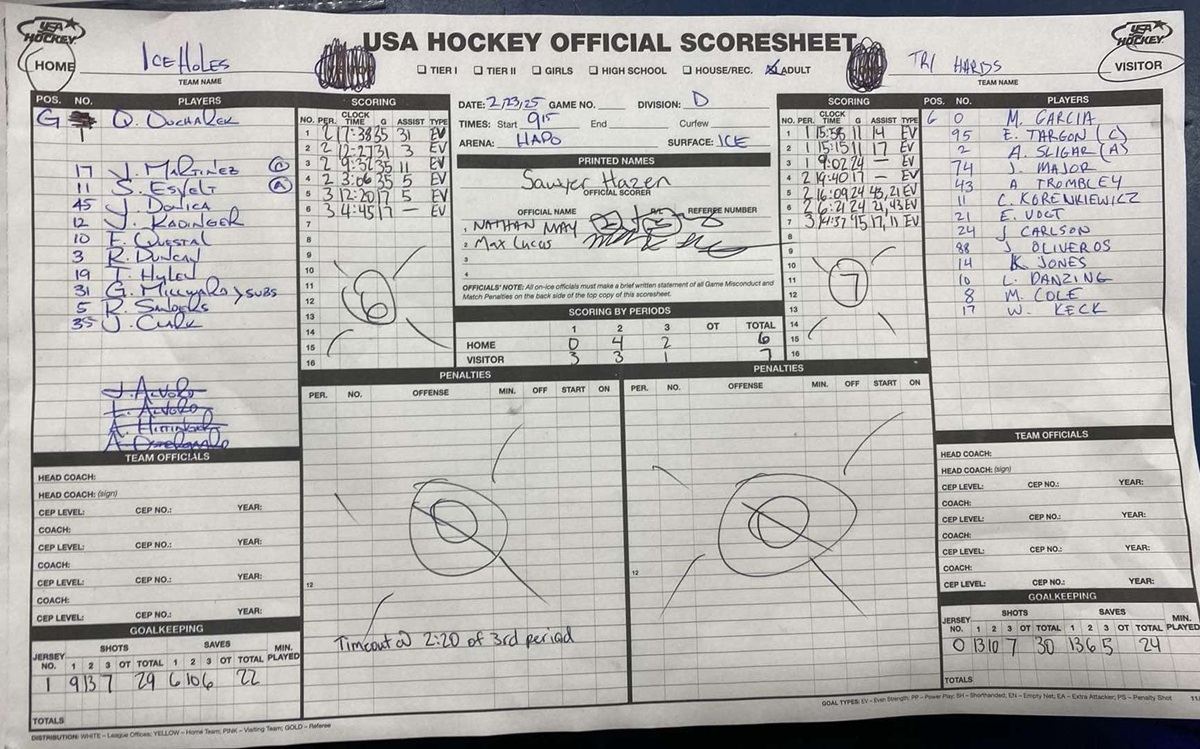 USA HOCKEY
USA HOCKEY OFFICIAL SCORESHEET
USA HOCKEY
HOME ICEHOLES
TEAM NAME
☐ TIER I ☐ TIER II ☐ GIRLS ☐ HIGH SCHOOL ☐ HOUSE/REC. ☒ ADULT
TRI HARDS VISITOR
TEAM NAME
POS. NO. PLAYERS
G 1 Q. DUCHAREK
17 J. MARTINEZ C
11 S. ESVELT A
45 J. DONICA
12 J. KADINGER
10 F. QUESTAL
3 R. DUNCAN
19 T. HYLEN
31 G. MILLWARD > SUBS
5 R. SANDERS
35 J. CLARK
J. ALVORO
L. ALVORO
TEAM OFFICIALS
HEAD COACH:
HEAD COACH: (sign)
CEP LEVEL: CEP NO.: YEAR:
COACH:
CEP LEVEL: CEP NO.: YEAR:
COACH:
CEP LEVEL: CEP NO.: YEAR:
COACH:
CEP LEVEL: CEP NO.: YEAR:
GOALKEEPING
JERSEY NO. SHOTS SAVES MIN. PLAYED
1 2 3 OT TOTAL 1 2 3 OT TOTAL
1 9 13 7 29 6 10 6 22
TOTALS
SCORING
NO. PER. CLOCK TIME G ASSIST TYPE
1 2 17:38 35 31 EV
2 2 12:27 31 3 EV
3 2 9:32 35 11 EV
4 2 3:06 35 5 EV
5 3 12:20 17 5 EV
6 3 4:45 17 — EV
7
8
9
10
11
12
13
14
15
16
6
DATE: 2/23/25 GAME NO. DIVISION: D
TIMES: Start 9:15 End Curfew
ARENA: HAPO SURFACE: ICE
PRINTED NAMES
Sawyer Hazen
OFFICIAL SCORER
OFFICIAL NAME REFEREE NUMBER
1 NATHAN MAY
2 Max Lucas
3
4
OFFICIALS' NOTE: All on-ice officials must make a brief written statement of all Game Misconduct and
Match Penalties on the back side of the top copy of this scoresheet.
SCORING BY PERIODS
1 2 3 OT TOTAL
HOME 0 4 2 6
VISITOR 3 3 1 7
SCORING
NO. PER. CLOCK TIME G ASSIST TYPE
1 1 15:58 11 14 EV
2 1 15:15 11 17 EV
3 1 9:02 24 — EV
4 2 19:40 17 — EV
5 2 16:09 24 43, 21 EV
6 2 6:21 24 21, 43 EV
7 3 14:37 15 17, 11 EV
8
9
10
11
12
13
14
15
16
7
POS. NO. PLAYERS
G 0 M. GARCIA
95 E. TARGON (C)
2 A. SLIGAR (A)
74 J. MAJOR
43 A TROMBLEY
11 C. KORENKIEWICZ
21 E. VOGT
24 J CARLSON
88 J. OLIVEROS
14 K JONES
10 L. DANZING
8 M. COLE
17 W. KECK
PENALTIES
PER. NO. OFFENSE MIN. OFF START ON
12
Timeout @ 2:20 of 3rd period
PENALTIES
PER. NO. OFFENSE MIN. OFF START ON
12
TEAM OFFICIALS
HEAD COACH:
HEAD COACH: (sign)
CEP LEVEL: CEP NO.: YEAR:
COACH:
CEP LEVEL: CEP NO.: YEAR:
COACH:
CEP LEVEL: CEP NO.: YEAR:
COACH:
CEP LEVEL: CEP NO.: YEAR:
GOALKEEPING
JERSEY NO. SHOTS SAVES MIN. PLAYED
1 2 3 OT TOTAL 1 2 3 OT TOTAL
0 13 10 7 30 13 6 5 24
TOTALS
GOAL TYPES: EV – Even Strength; PP – Power Play; SH – Shorthanded; EN – Empty Net; EA – Extra Attacker; PS – Penalty Shot
DISTRIBUTION: WHITE – League Offices; YELLOW – Home Team; PINK – Visiting Team; GOLD – Referee